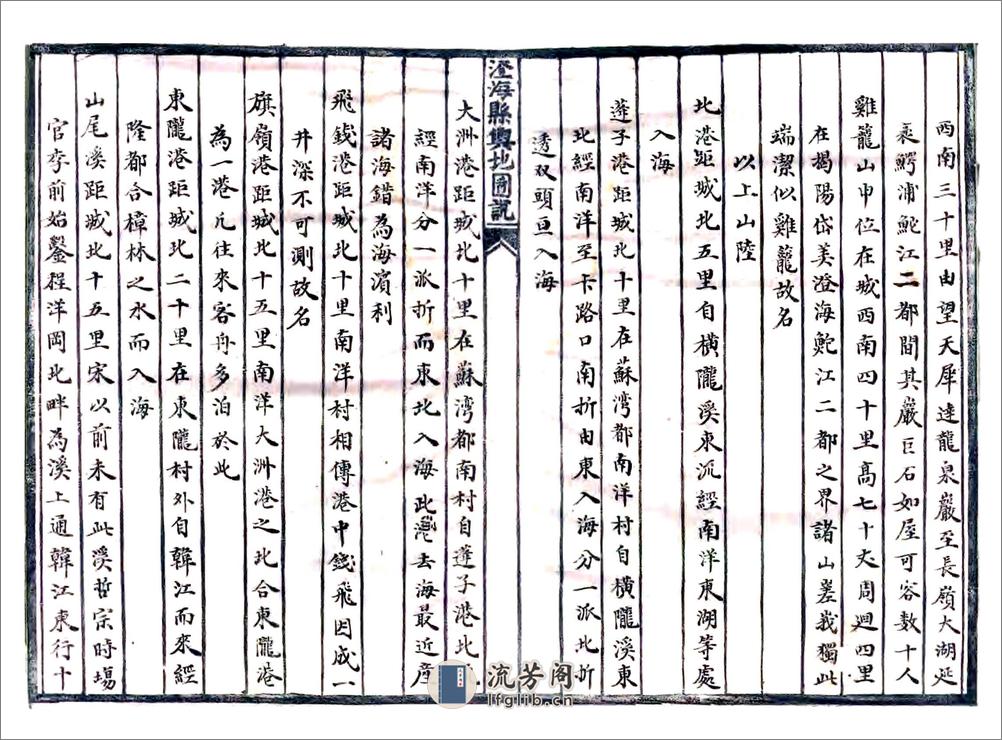 西南三十里由望天犀達龍泉巖至長嶺大湖延
亘鱷浦鮀江二都間其巖巨石如屋可容數十人
雞龍山申位在城西南四十里高七十丈周廻四里
在揭陽岱美澄海鮀江二都之界諸山嵳我獨此
端潔似雞籠故名
以上山陸
北港距城北五里自橫隴溪東流經南洋東湖等處
入海
蓮子港距城北十里在蘇灣都南洋村自橫隴溪東
北經南洋至卡路口南折由東入海分一派北折
透双頭亘入海
澄海縣輿地圖說
大洲港距城北十里在蘇灣都南村自蓮子港北
經南洋分一派折而東北入海此港去海最近産
諸海錯為海濱利
飛錢港距城北十里南洋村相傳港中錢飛因成一
井深不可測故名
旗嶺港距城北十五里南洋大洲港之北合東隴港
為一港凢往來客舟多泊於此
東隴港距城北二十里在東隴村外自韓江而來經
隆都合樟林之水而入海
山尾溪距城北十五里宋以前未有此溪哲宗時塲
官李前始鑿程洋岡北畔為溪上通韓江東行十
流芳阁
lfglib.cn